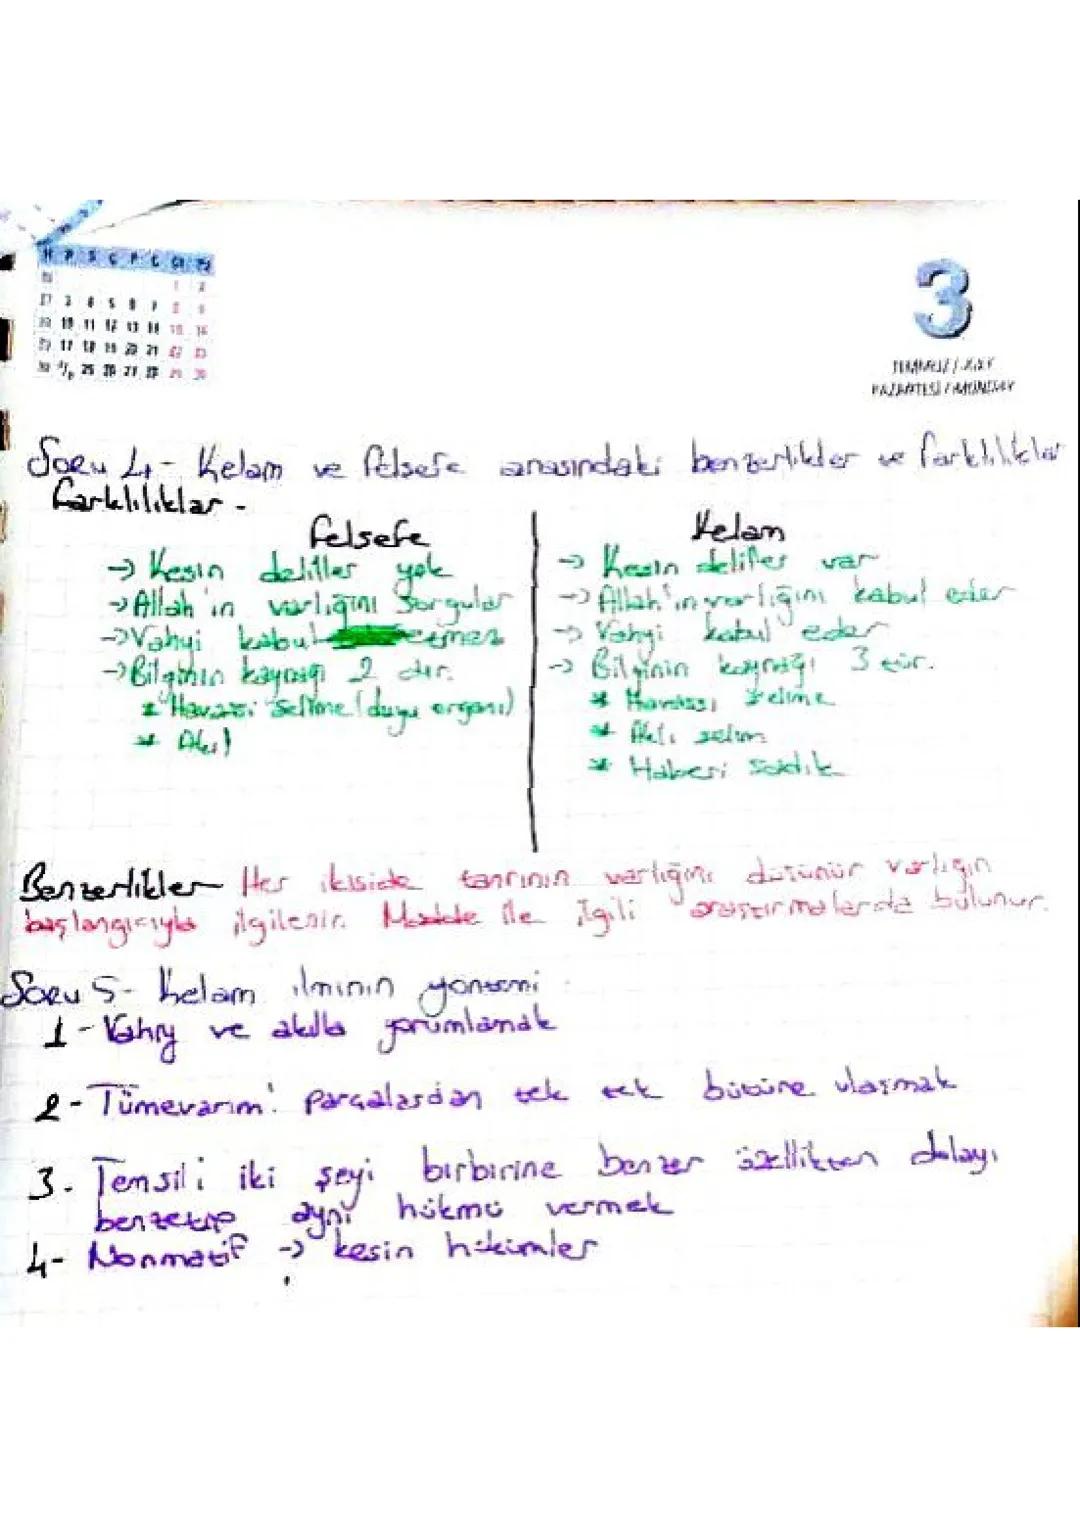 H P S Ç P C Ct Pz
1 2
27 3 4 5 6 7 8 9
28 10 11 12 13 14 15 16
29 17 18 19 20 21 22 23
25 26 27 28 29 30
3
TEMMUZ / JULY
PAZARTESİ / MONDAY
Soru 4- Kelam ve felsefe arasındaki benzerlikler ve farklılıklar
farklılıklar -
felsefe
→ Kesin deliller yok
→ Allah'ın varlığını sorgular
→ Vahyi kabul etmez
→ Bilginin kaynağı 2 dir.
* Havassi selime (duyu organı)
* Akıl
Kelam
→ Kesin deliller var
→ Allah'ın varlığını kabul eder
→ Vahyi kabul eder
→ Bilginin kaynağı 3 tür.
* Havassı selime
* Akli selim
* Haberi sadık
Benzerlikler- Her ikiside tanrının varlığını düşünür varlığın
başlangıcıyla ilgilenir. Madde ile ilgili araştırmalarda bulunur.
Soru 5- Kelam ilminin yöntemi
1- Vahiy ve akılla yorumlamak
2- Tümevarım: Parçalardan tek tek bütüne ulaşmak
3. Temsili iki şeyi birbirine benzer özellikten dolayı
benzetip aynı hükmü vermek
4- Nonmatif → kesin hükümler